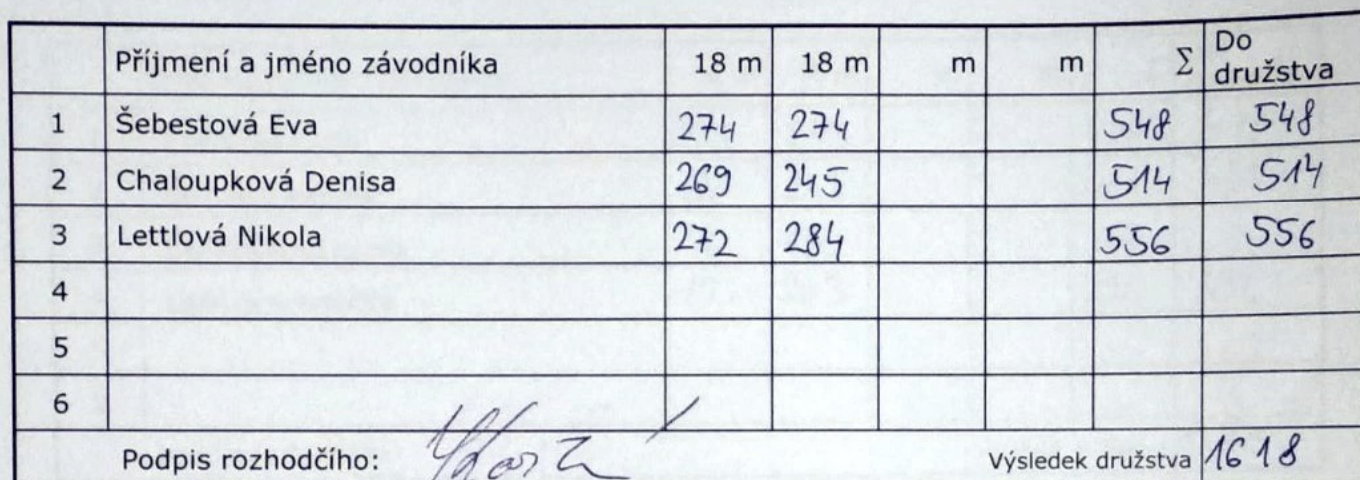 Příjmení a jméno závodníka 18 m 18 m m m Σ Do družstva
1 Šebestová Eva 274 274 548 548
2 Chaloupková Denisa 269 245 514 514
3 Lettlová Nikola 272 284 556 556
4
5
6
Podpis rozhodčího: Výsledek družstva 1618